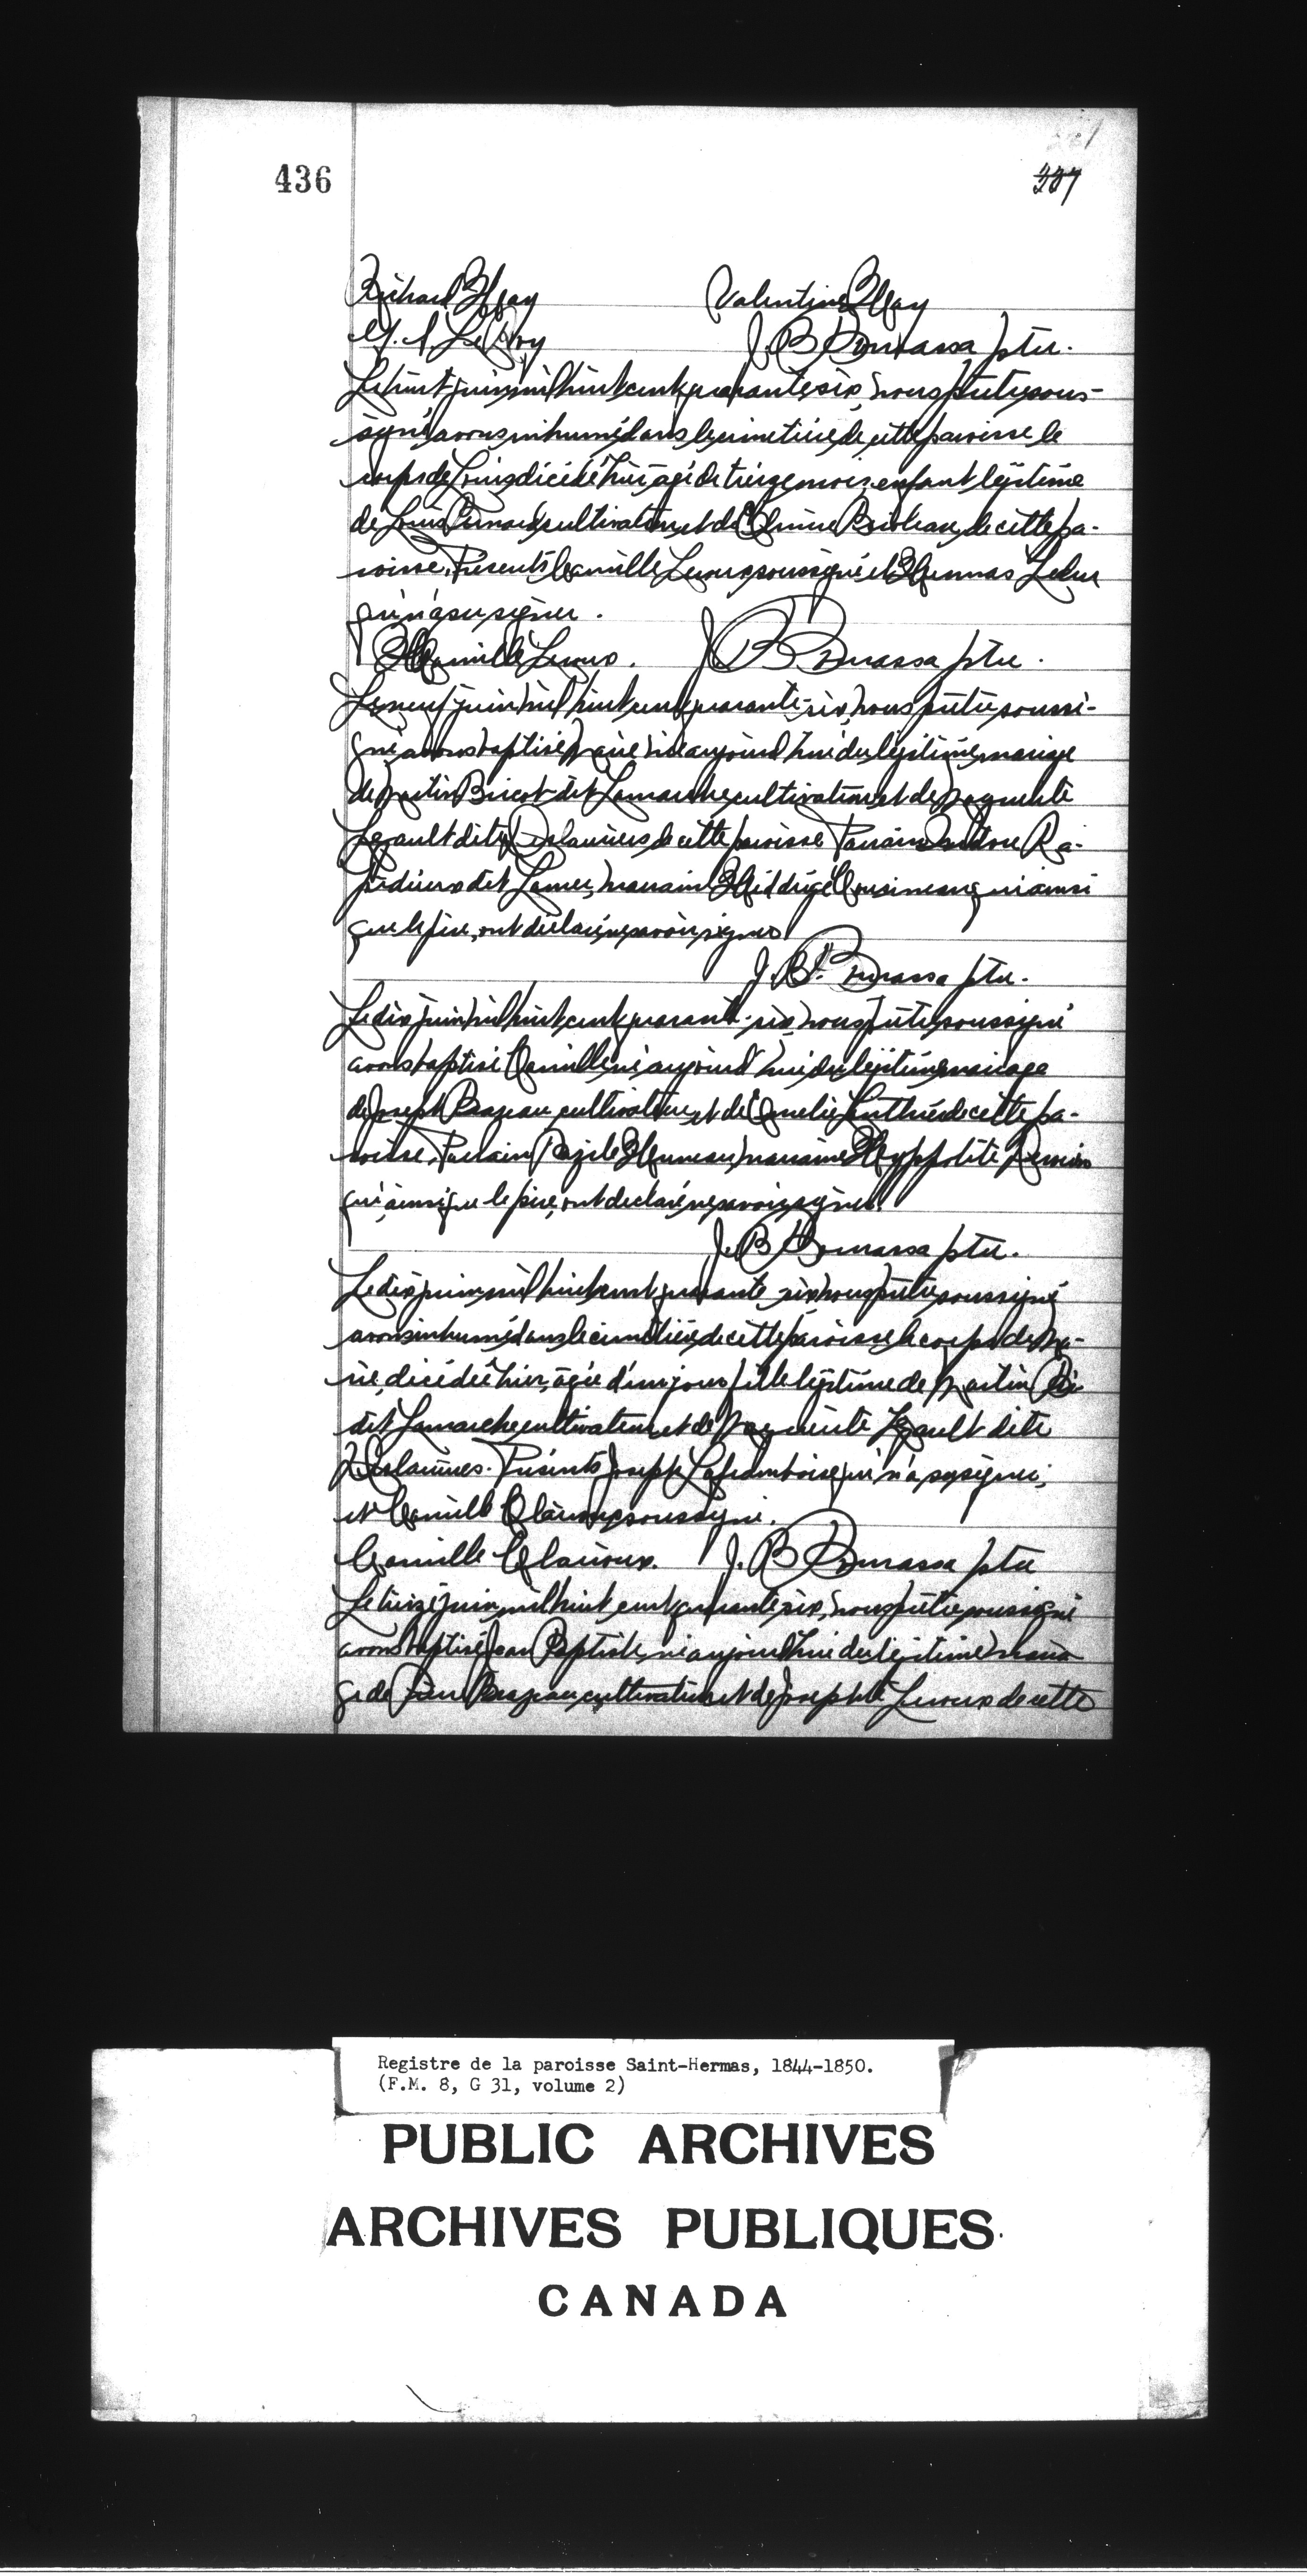 436
337
Richard Hay Valentine Hay
J. B Bourassa ptre.
Le huit juin mil huit cent quarante-six, nous prêtre sous-
signé avons inhumé dans le cimetière de cette paroisse le
corps de Louis décédé hier, agé de treize mois, enfant légitime
de Louis cultivateur, et de de cette pa-
roisse. Présents Camille Leroux soussigné et Hermas Leduc
qui n'a su signer.
Camille Leroux. J B Bourassa ptre.
Le neuf juin mil huit cent quarante-six, nous prêtre soussi-
gné avons baptisé Marie née aujourd'hui du légitime mariage
de Martin Bricot dit Lamarche cultivateur et de Marguerite
Legault dite Deslauriers de cette paroisse. Parrain
dit Lamer, marraine Cousineau qui ainsi
que le père, ont déclaré ne savoir signer
J. Bt. Bourassa ptre.
Le dix juin mil huit cent quarante-six, nous prêtre soussigné
avons baptisé Camille né aujourd'hui du légitime mariage
de Joseph Brazeau cultivateur, et de Amelie de cette pa-
roisse. Parrain Bazile marraine Hyppolite
qui, ainsi que le père, ont déclaré ne savoir signer.
J. B Bourassa ptre.
Le dix juin mil huit cent quarante six nous prêtre soussigné
avons inhumé dans le cimetière de cette paroisse le corps de Ma-
rie, décédée hier, agée d'un jour fille légitime de Martin Bri
dit Lamarche cultivateur et de Marguerite Legault dite
Deslauriers. Présents Joseph Laframboise qui n'a su signer;
et Camille Clairoux soussigné.
Camille Clairoux. J. B Bourassa ptre
Le treize juin mil huit cent quarante six, nous prêtre soussigné
avons baptisé Jean Baptiste, né aujourd'hui du légitime maria
ge de Pierre Brazeau cultivateur et de Josephte Leroux de cette
Registre de la paroisse Saint-Hermas, 1844-1850.
(F.M. 8, G 31, volume 2)
PUBLIC ARCHIVES
ARCHIVES PUBLIQUES
CANADA